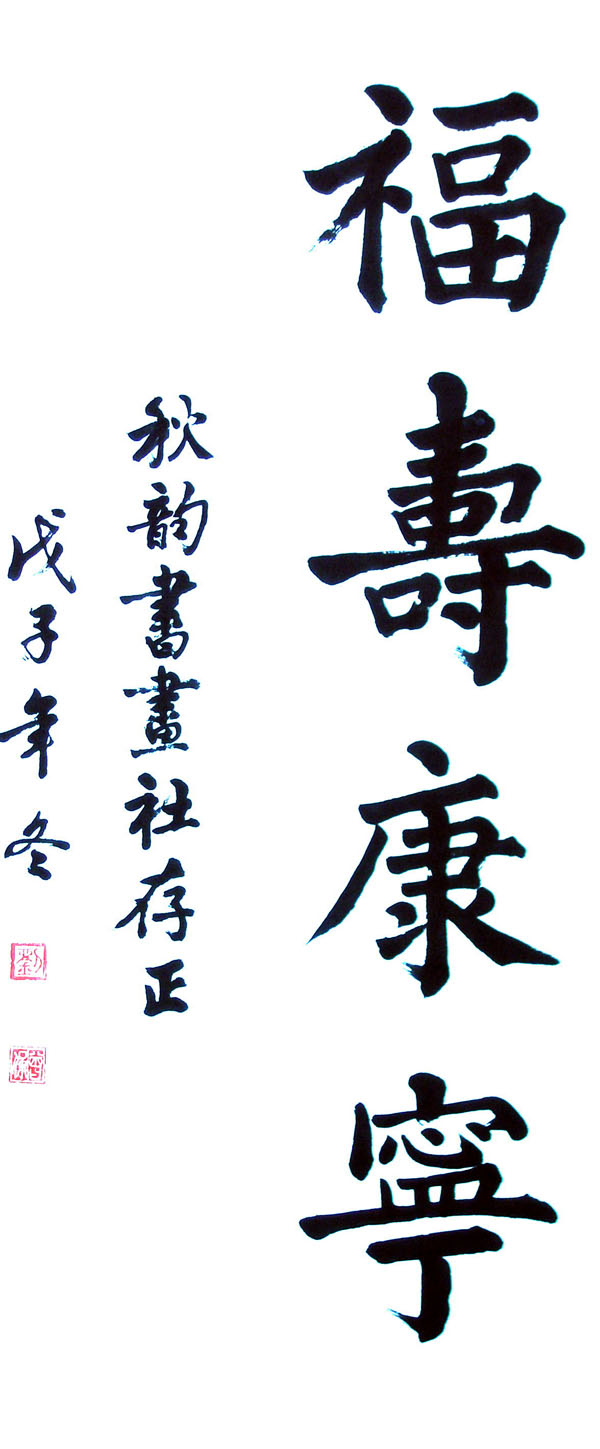 福壽康寧
秋韵書畫社存正
戊子年冬